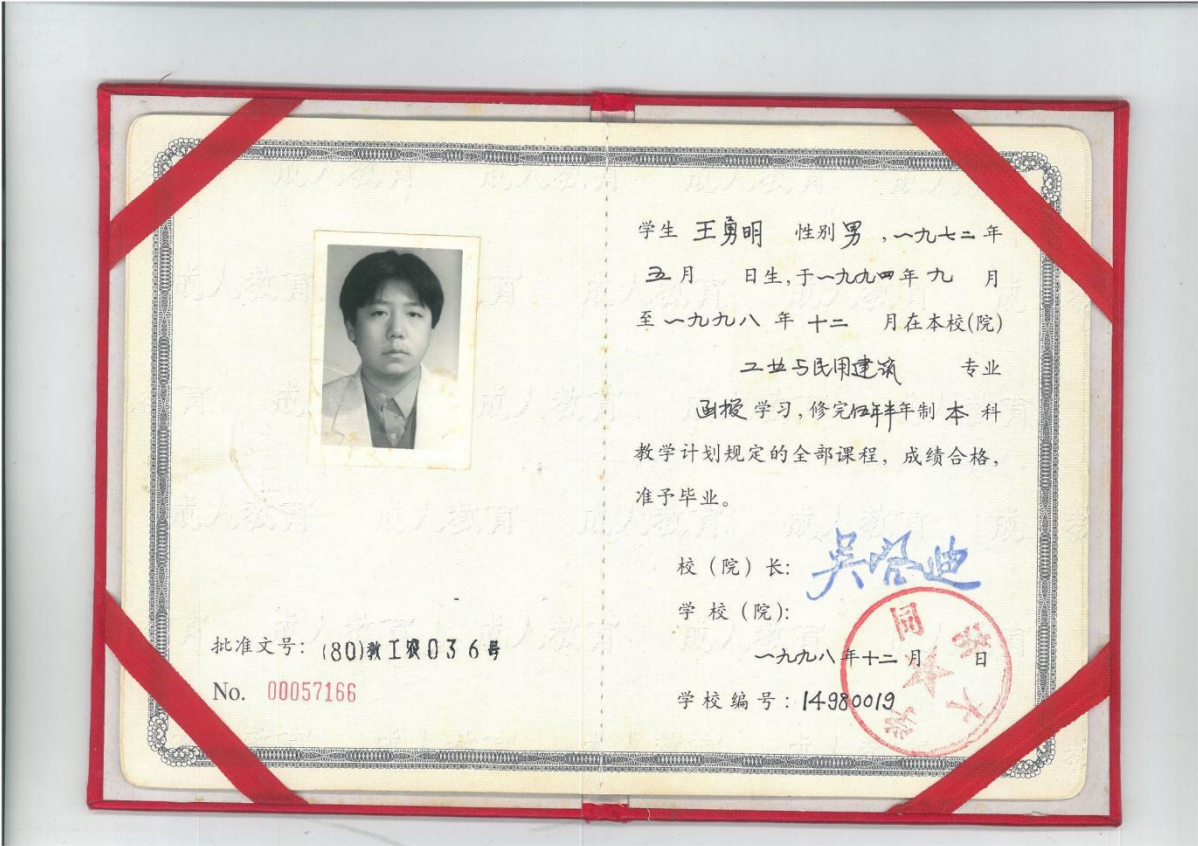 批准文号：(80)教工农036号
No. 00057166
学生 王勇明 性别 男，一九七二年
五月 日生，于一九九四年九月
至一九九八年十二月在本校(院)
工业与民用建筑 专业
函授学习，修完伍年半年制本科
教学计划规定的全部课程，成绩合格，
准予毕业。
校（院）长：吴启迪
学校（院）：
同济大学
一九九八年十二月 日
学校编号：14980019
成人教育